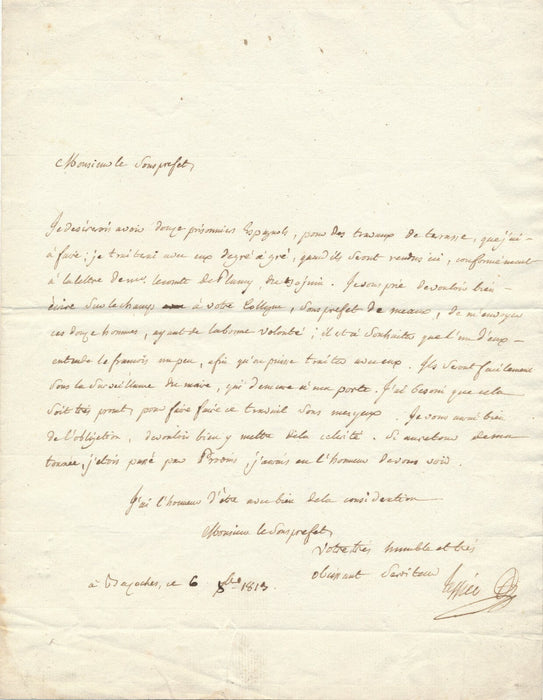 Monsieur le Sousprefet,
Je desirerois avoir douze prisonniers Espagnols, pour des travaux de terrasse, que j'ai
à faire; je traiterai avec eux de gré à gré, quand ils seront rendus ici, conformément
à la lettre de mr. le comte de Plancy, du 30 juin. Je vous prie de vouloir bien
écrire sur le champ à votre Collegue, Sousprefet de meaux, de m'envoyer
ces douze hommes, ayant de la bonne volonté; il est à souhaiter que l'un d'eux
entende le francois un peu, afin qu'on puisse traiter avec eux. Ils seront facilement
sous la surveillance du maire, qui demeure à ma porte. J'ai besoin que cela
soit très prompt, pour faire faire ce travail sous mes yeux. Je vous aurai bien
de l'obligation, de vouloir bien y mettre de la celerité. Si au retour de ma
tournée, j'etois passé par Provins, j'aurois eu l'honneur de vous voir.
J'ai l'honneur d'être avec bien de la consideration
Monsieur le Sousprefet,
Votre très humble et très
obeissant Serviteur
à Bazoches, ce 6 8bre 1813 Tessier